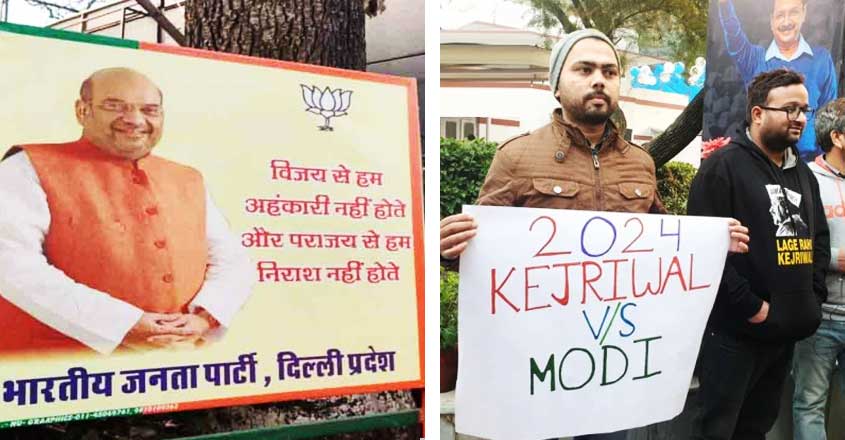 विजय से हम
अहंकारी नहीं होते
और पराजय से हम
निराश नहीं होते
भारतीय जनता पार्टी , दिल्ली प्रदेश
2024
KEJRIWAL
V/S
MODI
LAGE RAHO
KEJRIWAL